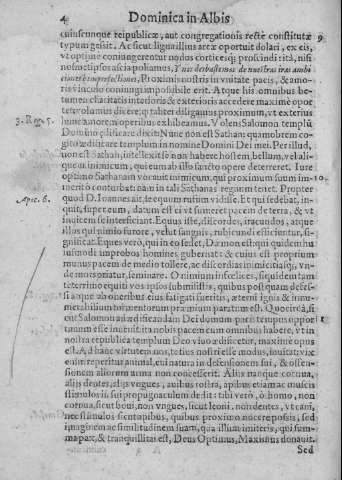 4 Dominica in Albis
cuiuscunque reipublicæ, aut congregationis recte constitutæ 9
typum gessit. Ac sicut ligna illius arcæ oportuit dolari, ex eis,
vt optime coniungerentur nodos corticesq; proscindi ita, nisi
nosmetipsos ascia poliamus, Y nos desbastemos de nuestras iras ambi
ciones è imperfectiones, Proximi nostris in vnitate pacis, & amo-
ris vinculo coniungi impossibile erit. Atque his omnibus be-
tumen charitatis interioris & exterioris accedere maxime opor
tet volumus dicere; qualiter diligamus proximum, vt exterius
3. Reg. 5. humeamorem operibus exhibeamus. Volens Salomon templũ
Domino ædificare dixit: Nunc non est Sathan: quamobrem co-
gito ædificare templum in nomine Domini Dei mei. Per illud,
non est Sathan, intellexisse non habere hostem, bellum, vel ali-
quæ inimicum, qui eum ab illo sancto opere deterreret. Iure
optimo Sathanam vocauit inimicum, qui proximum suum im- 10
merito conturbat: nam in tali Sathanas regnum tenet. Propter
Apoc. 6. quod D. Ioannes ait, se equum rufum vidisse. Et qui sedebat, in-
quit, super eum, datum est ei vt sumeret pacem de terra, & vt
inuicem se interficiant. Equus iste, discordes, iracundos, atque
illus qui nimio furore, velut sanguis, rubicundi efficiuntur, si-
gnificat. Eques vero, qui in eo sedet, Dæmon est: qui quidem hu
iusmodi improbos homines gubernat: & cuius est proprium
munus pacem de medio tollere, ac discordias inimicitiasq; vn-
de mors oriatur, seminare. O nimium infelices, siquidem tam
teterrimo equiti vos ipsos submisistis, quibus post quam defes-
si atque ab oneribus eius fatigati fueritis, æterni ignis & innu-
merabilium tormentorum præmium paratum est. Quocirca, si
cut Salomon ad ædificandam Dei domum pacis tempus oppor
tunum esse inuenit ita nobis pacem cum omnibus habere, vt in
nostra republica templum Deo viuo ædificetur, maxime opus
est. Ad hanc virtutem nos, totius nostri esse modus, inuitat: vix
enim reperitur animal, cui natura in defensionem sui, & offen-
sionem aliorum arma non concesserit. Alijs namque cornua,
alijs dentes, alijs vngues, auibus rostra, apibus etiam ac muscis
stimulos in sui propugnaculum dedit: tibi verò, ò homo, non
cornua, sicut boui, non vngues, sicut leoni, non dentes, vt cani,
nec stimulos sicut apibus, quibus proximo nocere possis, sed
imaginem ac similitudinem suam, qua illum imiteris, qui sum-
ma pax, & tranquillitas est, Deus Optimus, Maximus donauit.
Sed